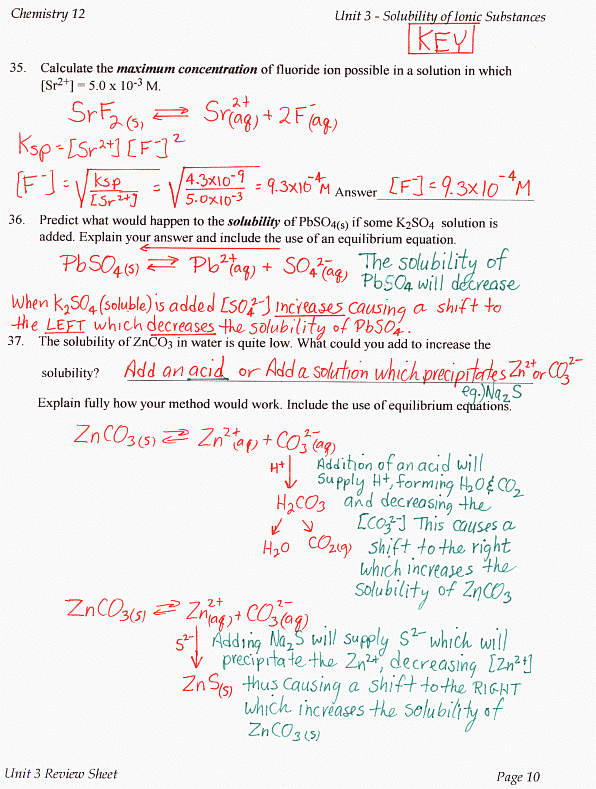 Chemistry 12 Unit 3 - Solubility of Ionic Substances
KEY
35. Calculate the maximum concentration of fluoride ion possible in a solution in which
[Sr²⁺] = 5.0 x 10⁻³ M.
SrF₂(s) ⇌ Sr²⁺(aq) + 2F⁻(aq)
Ksp = [Sr²⁺] [F⁻]²
[F⁻] = √(Ksp/[Sr²⁺]) = √(4.3x10⁻⁹/5.0x10⁻³) = 9.3x10⁻⁴ M Answer [F⁻] = 9.3x10⁻⁴ M
36. Predict what would happen to the solubility of PbSO₄(s) if some K₂SO₄ solution is
added. Explain your answer and include the use of an equilibrium equation.
PbSO₄(s) ⇌ Pb²⁺(aq) + SO₄²⁻(aq) The solubility of
PbSO₄ will decrease
When K₂SO₄ (soluble) is added [SO₄²⁻] increases causing a shift to
the LEFT which decreases the solubility of PbSO₄.
37. The solubility of ZnCO₃ in water is quite low. What could you add to increase the
solubility? Add an acid or Add a solution which precipitates Zn²⁺ or CO₃²⁻
eg.) Na₂S
Explain fully how your method would work. Include the use of equilibrium equations.
ZnCO₃(s) ⇌ Zn²⁺(aq) + CO₃²⁻(aq)
H⁺ ↓ Addition of an acid will
supply H⁺, forming H₂O & CO₂
H₂CO₃ and decreasing the
↙ ↘ [CO₃²⁻] This causes a
H₂O CO₂(g) shift to the right
which increases the
solubility of ZnCO₃
ZnCO₃(s) ⇌ Zn²⁺(aq) + CO₃²⁻(aq)
S²⁻ ↓ Adding Na₂S will supply S²⁻ which will
precipitate the Zn²⁺, decreasing [Zn²⁺]
ZnS(s) thus causing a shift to the RIGHT
which increases the solubility of
ZnCO₃(s)
Unit 3 Review Sheet Page 10